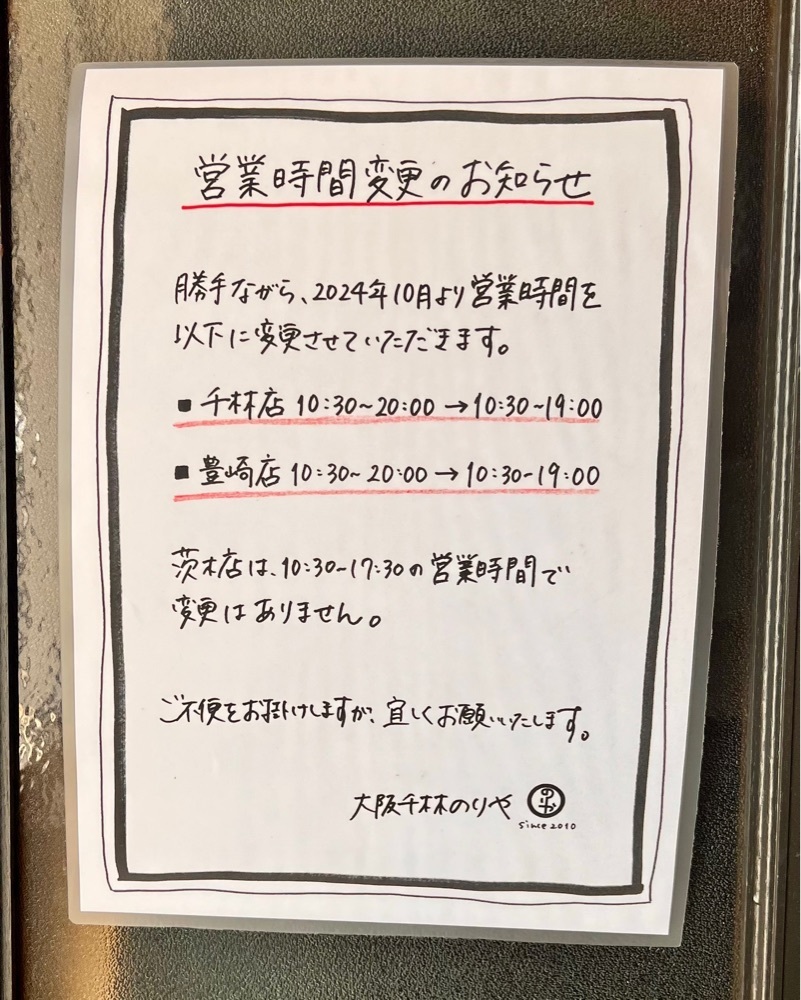 営業時間変更のお知らせ
勝手ながら、2024年10月より営業時間を
以下に変更させていただきます。
■ 千林店 10:30~20:00 →10:30~19:00
■ 豊崎店 10:30~20:00→10:30-19:00
茨木店は、10:30~17:30の営業時間で
変更はありません。
ご不便をお掛けしますが、宜しくお願いいたします。
大阪千林のりや
のりや
since 2010